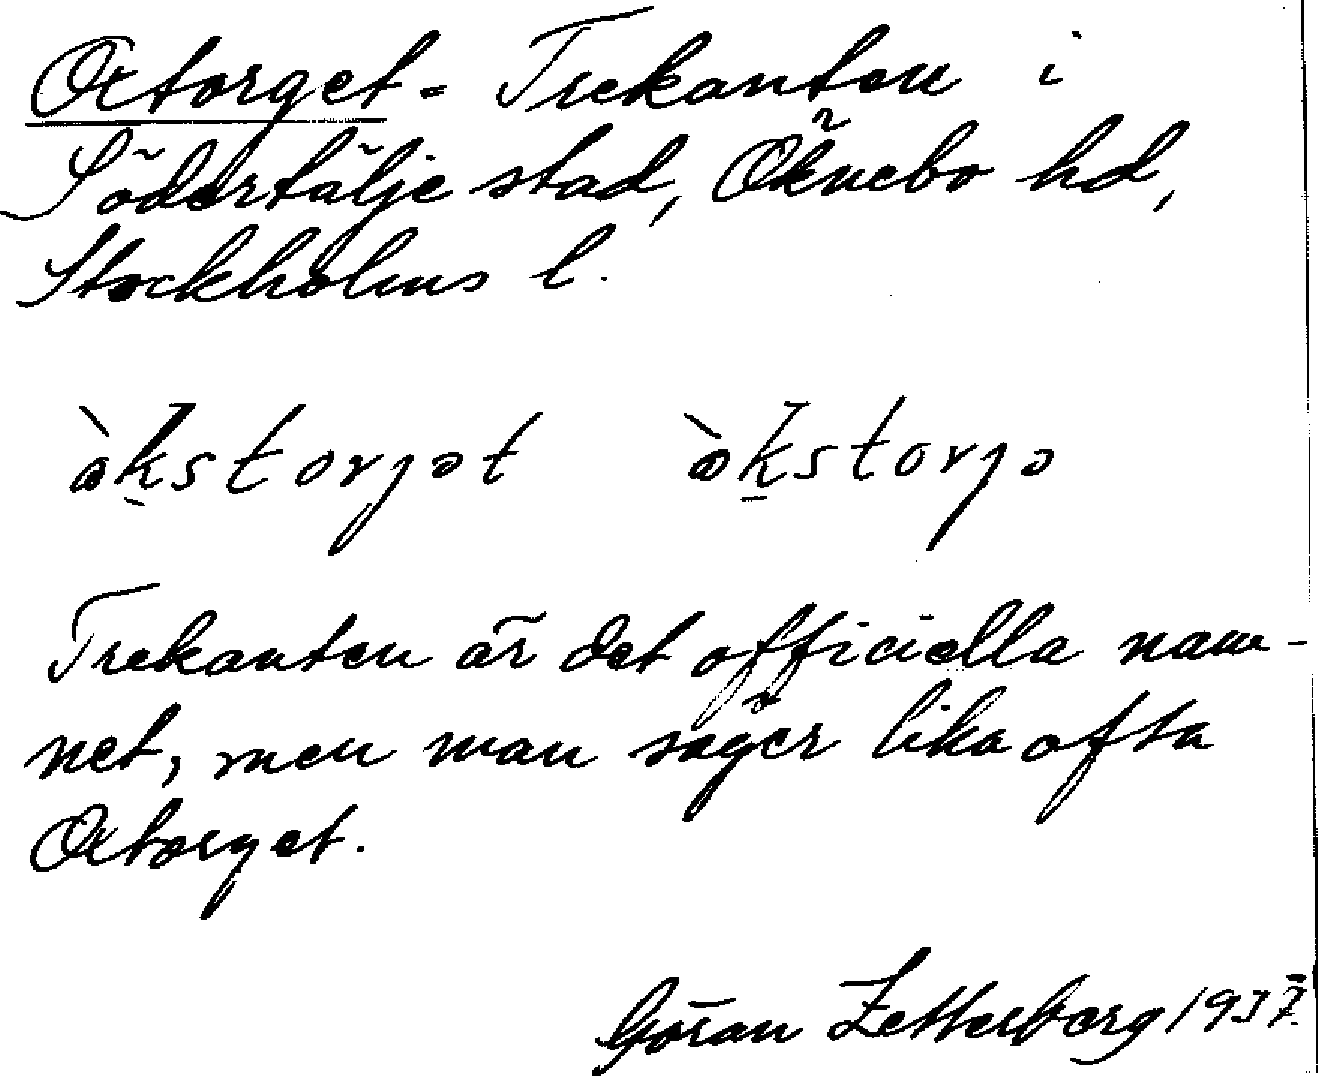 Oxtorget = Trekanten i
Södertälje stad, Öknebo hd,
Stockholms l.
Trekanten är det officiella nam-
net, men man säger lika ofta
Oxtorget.
Göran Zetterberg 1937